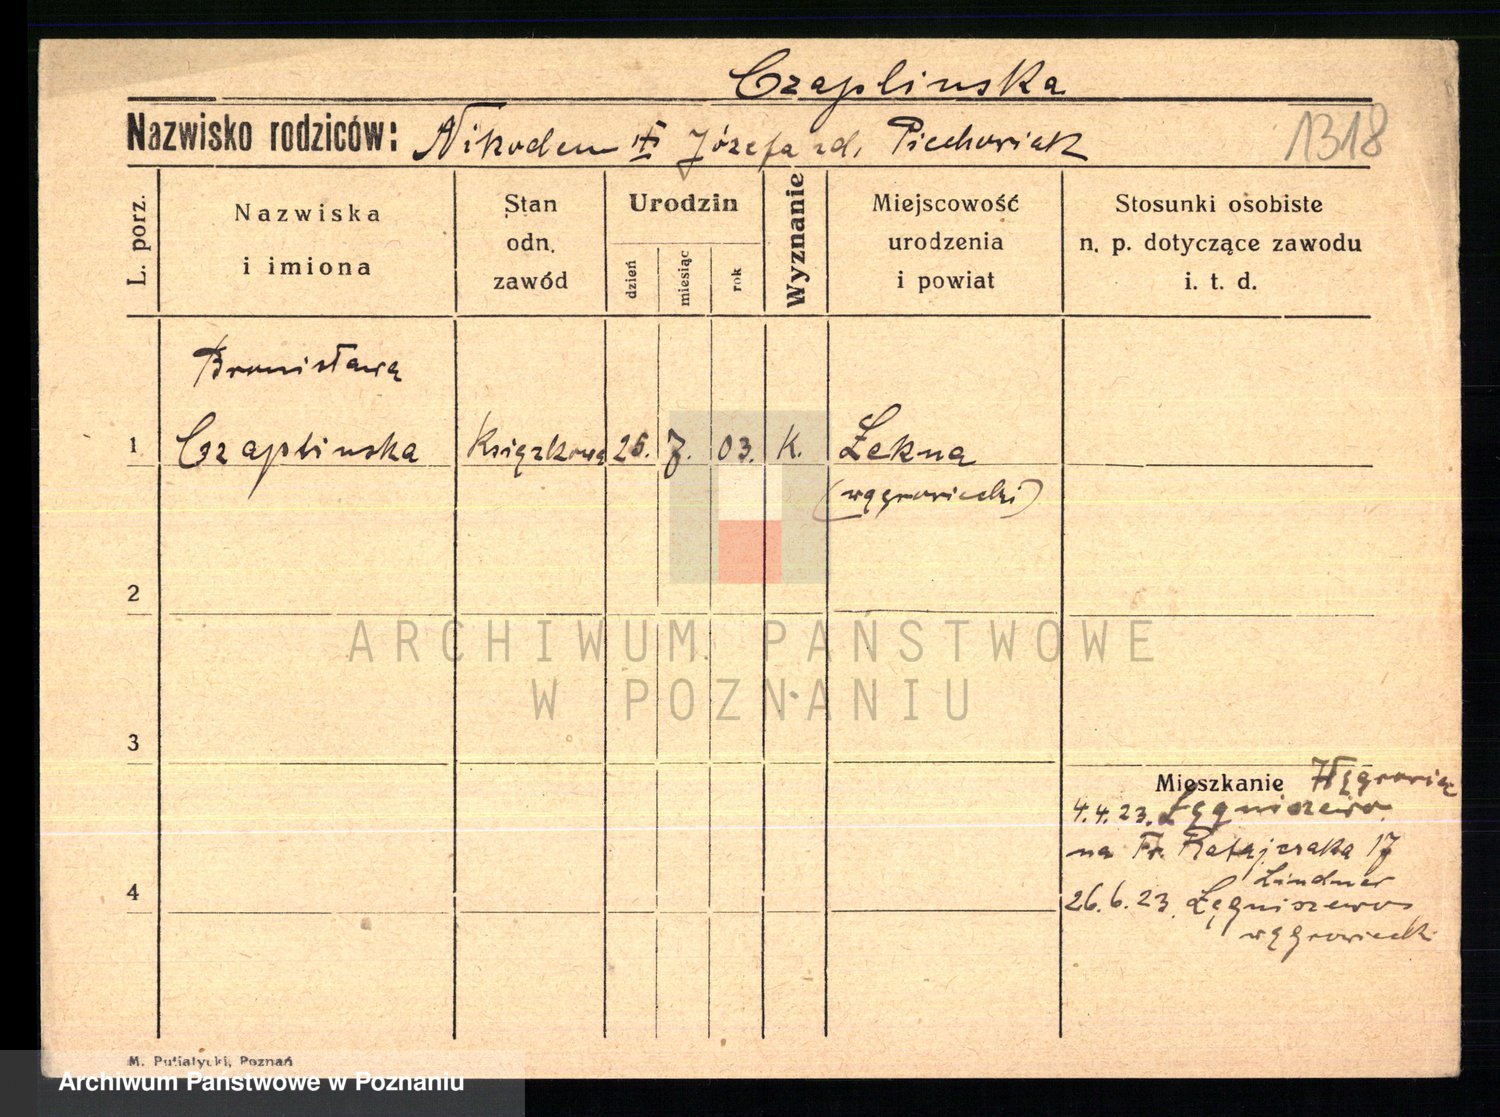 Czaplinska
Nazwisko rodziców: Nikodem Józefa zd. Piechowiak
1318
L. porz.
Nazwiska
i imiona
Stan
odn.
zawód
Urodzin
dzień
miesiąc
rok
Wyznanie
Miejscowość
urodzenia
i powiat
Stosunki osobiste
n. p. dotyczące zawodu
i. t. d.
Bronisława
1 Czaplinska Książkowa 26. 7. 03. K. Łekna
(wągrowiecki)
2
ARCHIWUM PAŃSTWOWE
W POZNANIU
3
Mieszkanie
4.4.23. Łęgniszewo
na Fr. Ratajczaka 17
Lindner
4
26.6.23. Łęgniszewo
wągrowiecki
M. Putiatycki, Poznań
Archiwum Państwowe w Poznaniu